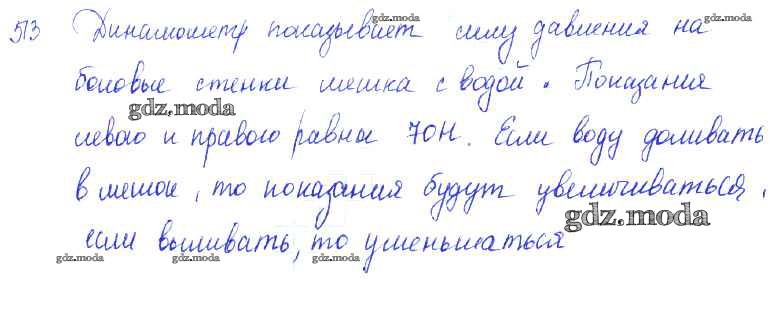 513 Динамометр показывает силу давления на
gdz.moda gdz.moda
боковые стенки мешка с водой. Показания
gdz.moda
левого и правого равны 70Н. Если воду доливать
в мешок, то показания будут увеличиваться,
gdz.moda
если выливать, то уменьшаться
gdz.moda gdz.moda gdz.moda